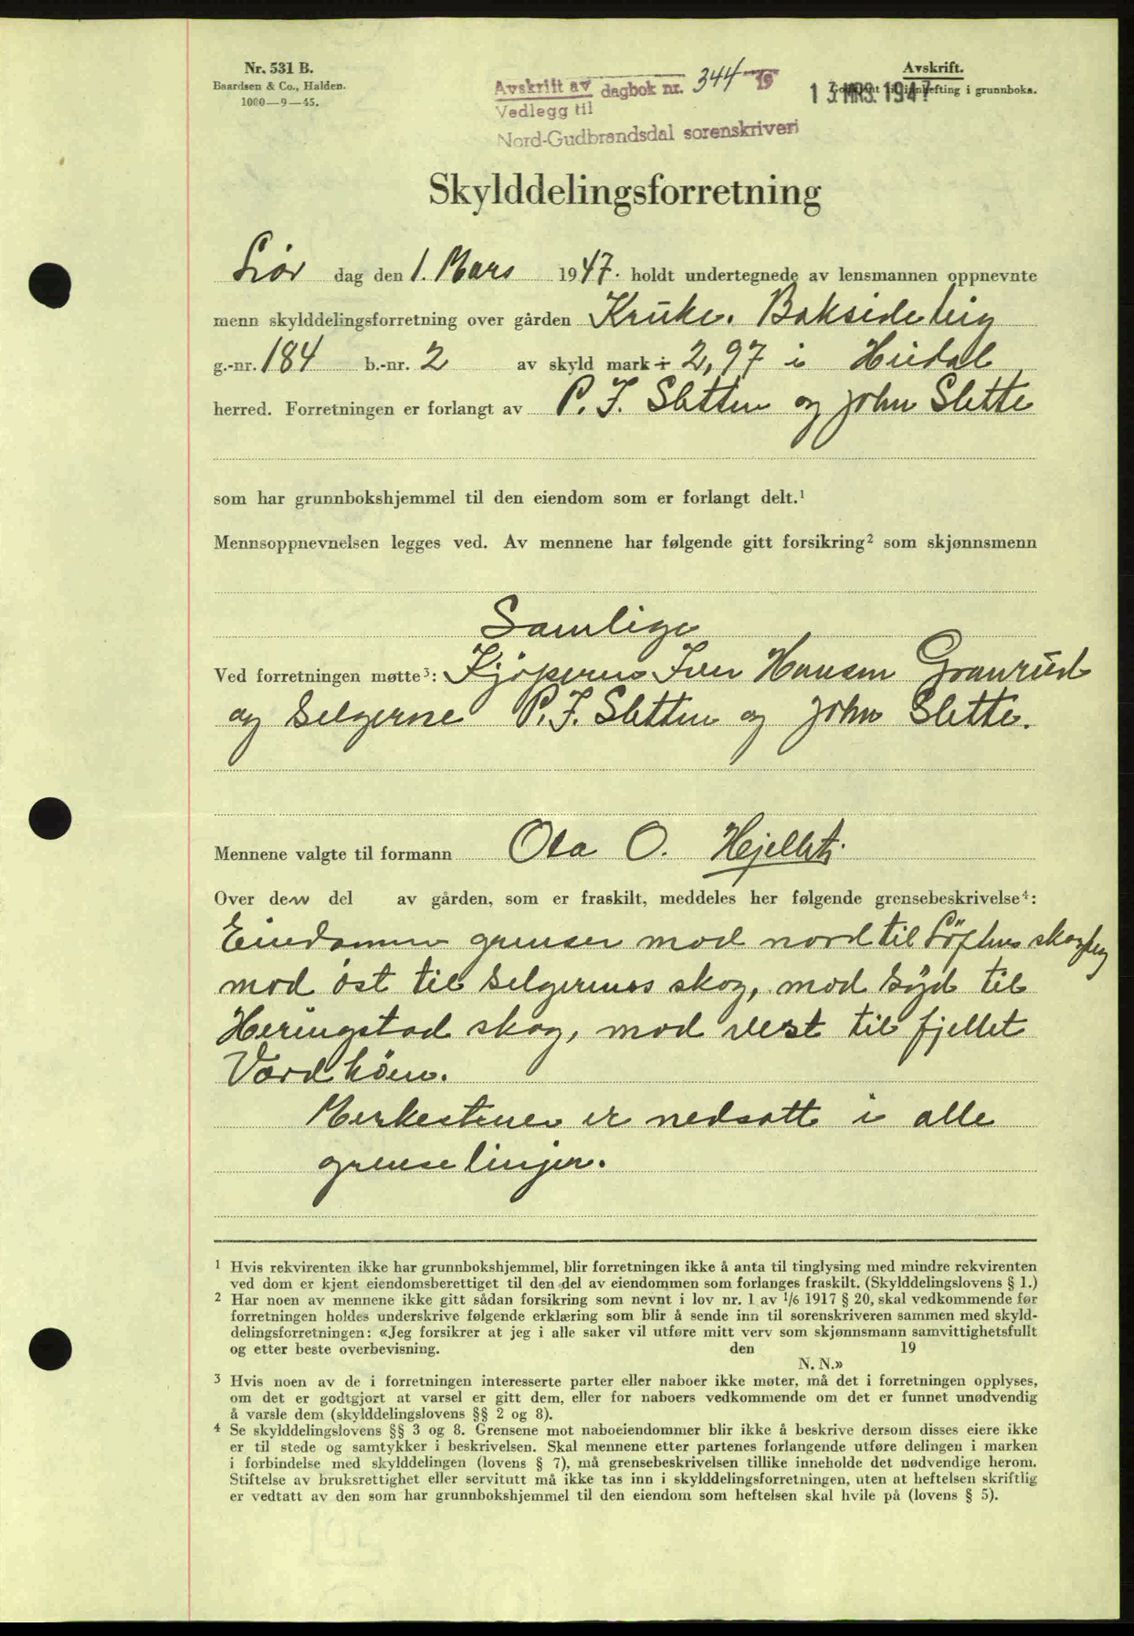 Nr. 531 B.
Baardsen & Co., Halden.
1000—9—45.
Avskrift av dagbok nr. 344 19
Vedlegg til
Nord-Gudbrandsdal sorenskriveri
13 MRS. 1947
Avskrift.
til innhefting i grunnboka.
Skylddelingsforretning
Lör dag den 1. Mars 1947. holdt undertegnede av lensmannen oppnevnte
menn skylddelingsforretning over gården Kruke. Baksideteig
g.-nr. 184 b.-nr. 2 av skyld mark ÷ 2,97 i Heidal
herred. Forretningen er forlangt av P. J. Sletten og John Slette
som har grunnbokshjemmel til den eiendom som er forlangt delt.¹
Mennsoppnevnelsen legges ved. Av mennene har følgende gitt forsikring² som skjønnsmenn
Samlige
Ved forretningen møtte³: Kjöperne Iver Hansen Granrud
og Selgerne P. J. Sletten og John Slette.
Mennene valgte til formann Ola O. Hjellst.
Over den del av gården, som er fraskilt, meddeles her følgende grensebeskrivelse⁴:
Eiendomen grenser mod nord til Löftus skogteig
mod öst til Selgernes skog, mod Syd til
Heringstad skog, mod vest til fjellet
Vardhöin.
Merkestener er nedsatt i alle
grenselinjer.
¹ Hvis rekvirenten ikke har grunnbokshjemmel, blir forretningen ikke å anta til tinglysing med mindre rekvirenten
ved dom er kjent eiendomsberettiget til den del av eiendommen som forlanges fraskilt. (Skylddelingslovens § 1.)
² Har noen av mennene ikke gitt sådan forsikring som nevnt i lov nr. 1 av 1/6 1917 § 20, skal vedkommende før
forretningen holdes underskrive følgende erklæring som blir å sende inn til sorenskriveren sammen med skyld-
delingsforretningen: «Jeg forsikrer at jeg i alle saker vil utføre mitt verv som skjønnsmann samvittighetsfullt
og etter beste overbevisning. den 19
N. N.»
³ Hvis noen av de i forretningen interesserte parter eller naboer ikke møter, må det i forretningen opplyses,
om det er godtgjort at varsel er gitt dem, eller for naboers vedkommende om det er funnet unødvendig
å varsle dem (skylddelingslovens §§ 2 og 8).
⁴ Se skylddelingslovens §§ 3 og 8. Grensene mot naboeiendommer blir ikke å beskrive dersom disses eiere ikke
er til stede og samtykker i beskrivelsen. Skal mennene etter partenes forlangende utføre delingen i marken
i forbindelse med skylddelingen (lovens § 7), må grensebeskrivelsen tillike inneholde det nødvendige herom.
Stiftelse av bruksrettighet eller servitutt må ikke tas inn i skylddelingsforretningen, uten at heftelsen skriftlig
er vedtatt av den som har grunnbokshjemmel til den eiendom som heftelsen skal hvile på (lovens § 5).